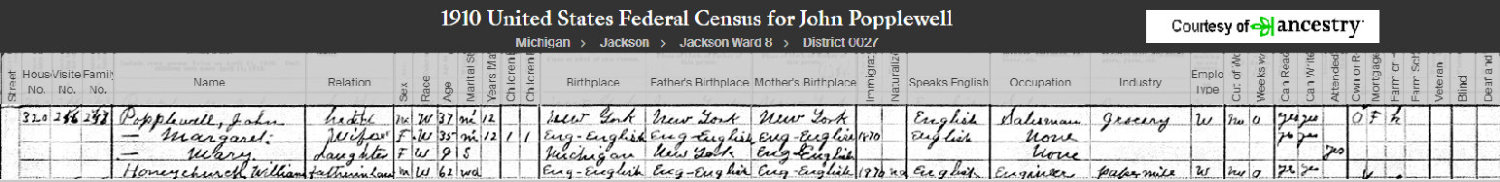 1910 United States Federal Census for John Popplewell
Courtesy of ancestry
Michigan > Jackson > Jackson Ward 8 > District 0027
Street House No. Visite No. Family No. Name Relation Sex Race Age Marital St Years Ma Children Children Birthplace Father's Birthplace Mother's Birthplace Immigrat Naturaliz Speaks English Occupation Industry Emplo Type Out of W Weeks w Can Read Can Write Attended Own or R Mortgag Farm or Farm Sch Veteran Blind Deaf and
320 Popplewell, John head m W 37 m 12 New York New York New York English Salesman Grocery W no 0 yes yes O F h
— Margaret wife F W 35 m 12 1 1 Eng-English Eng-English Eng-English 1870 English None yes yes
— Mary daughter F W 9 S Michigan New York Eng-English None yes
Honeychurch William father in law m W 62 wd Eng-English Eng-English Eng-English na English Engineer paper mill W no 0 yes yes